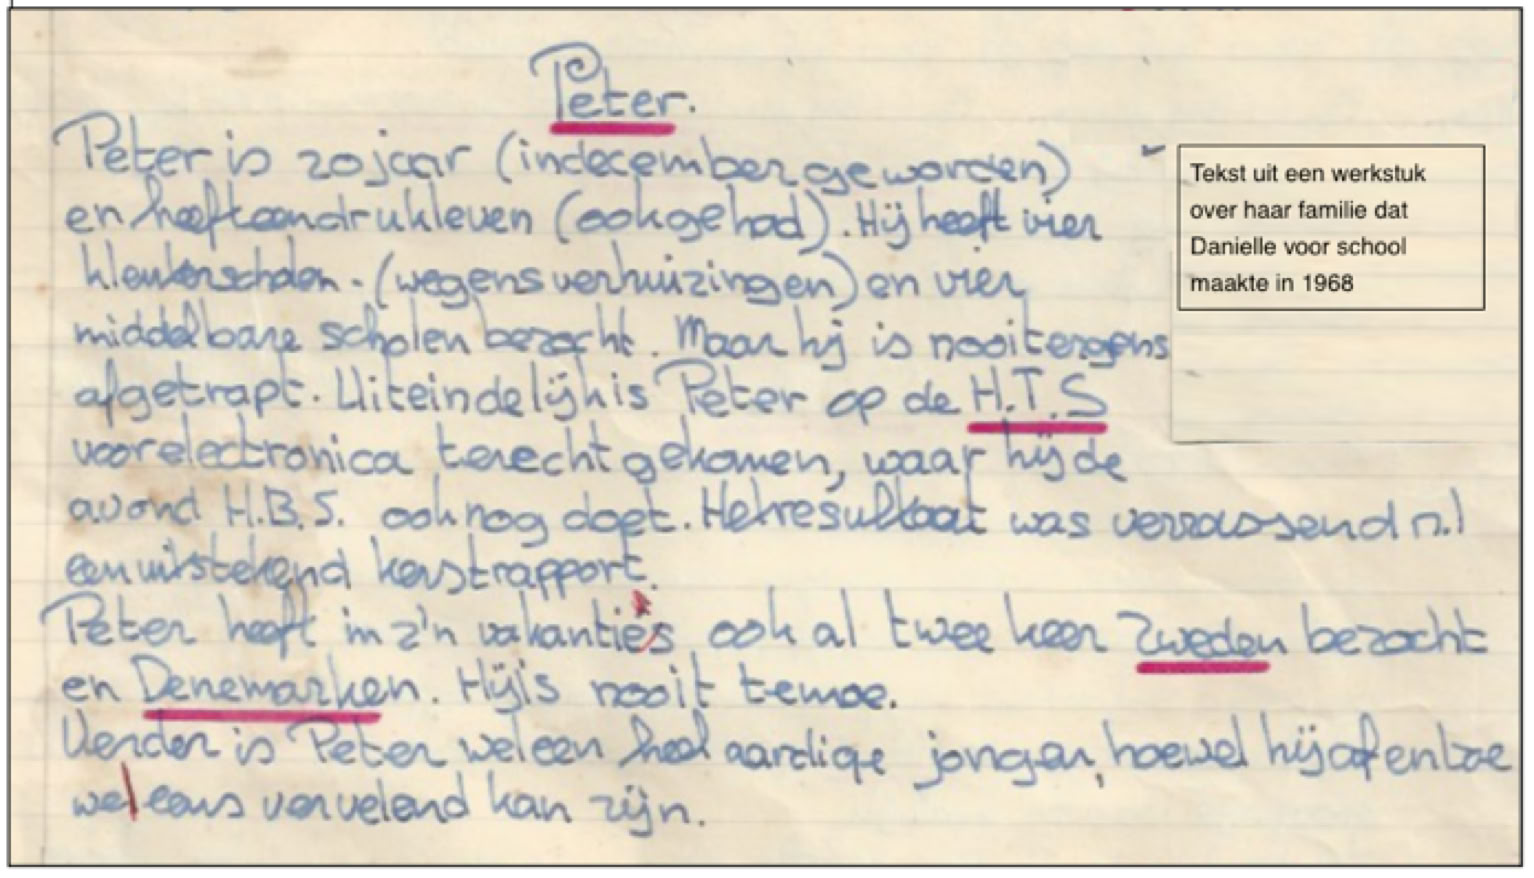 Peter.
Peter is 20 jaar (in december geworden)
en heeft een druk leven (ook gehad). Hij heeft vier
kleuterscholen. (wegens verhuizingen) en vier
middelbare scholen bezocht. Maar hij is nooit ergens
afgetrapt. Uiteindelijk is Peter op de H.T.S
voor electronica terecht gekomen, waar hij de
avond H.B.S. ook nog doet. Het resultaat was verrassend n.l
een uitstekend kerstrapport.
Peter heeft in z'n vakantie's ook al twee keer Zweden bezocht
en Denemarken. Hij is nooit te moe.
Verder is Peter wel een heel aardige jongen, hoewel hij af en toe
wel eens vervelend kan zijn.
Tekst uit een werkstuk
over haar familie dat
Danielle voor school
maakte in 1968